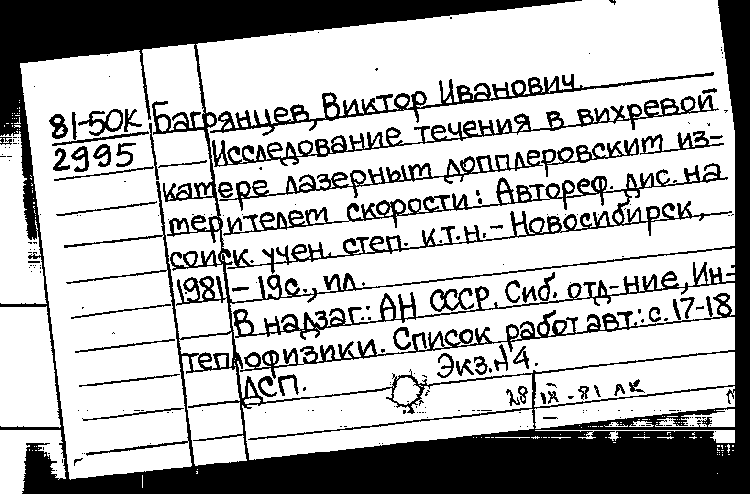 81-50К Багрянцев, Виктор Иванович.
2995 Исследование течения в вихревой
камере лазерным допплеровским из-
мерителем скорости: Автореф. дис. на
соиск. учен. степ. к.т.н. - Новосибирск,
1981 - 19с., ил.
В надзаг.: АН СССР. Сиб. отд-ние, Ин-т
теплофизики. Список работ авт.: с. 17-18
ДСП. Экз. №4.
28/IX-81 ЛК